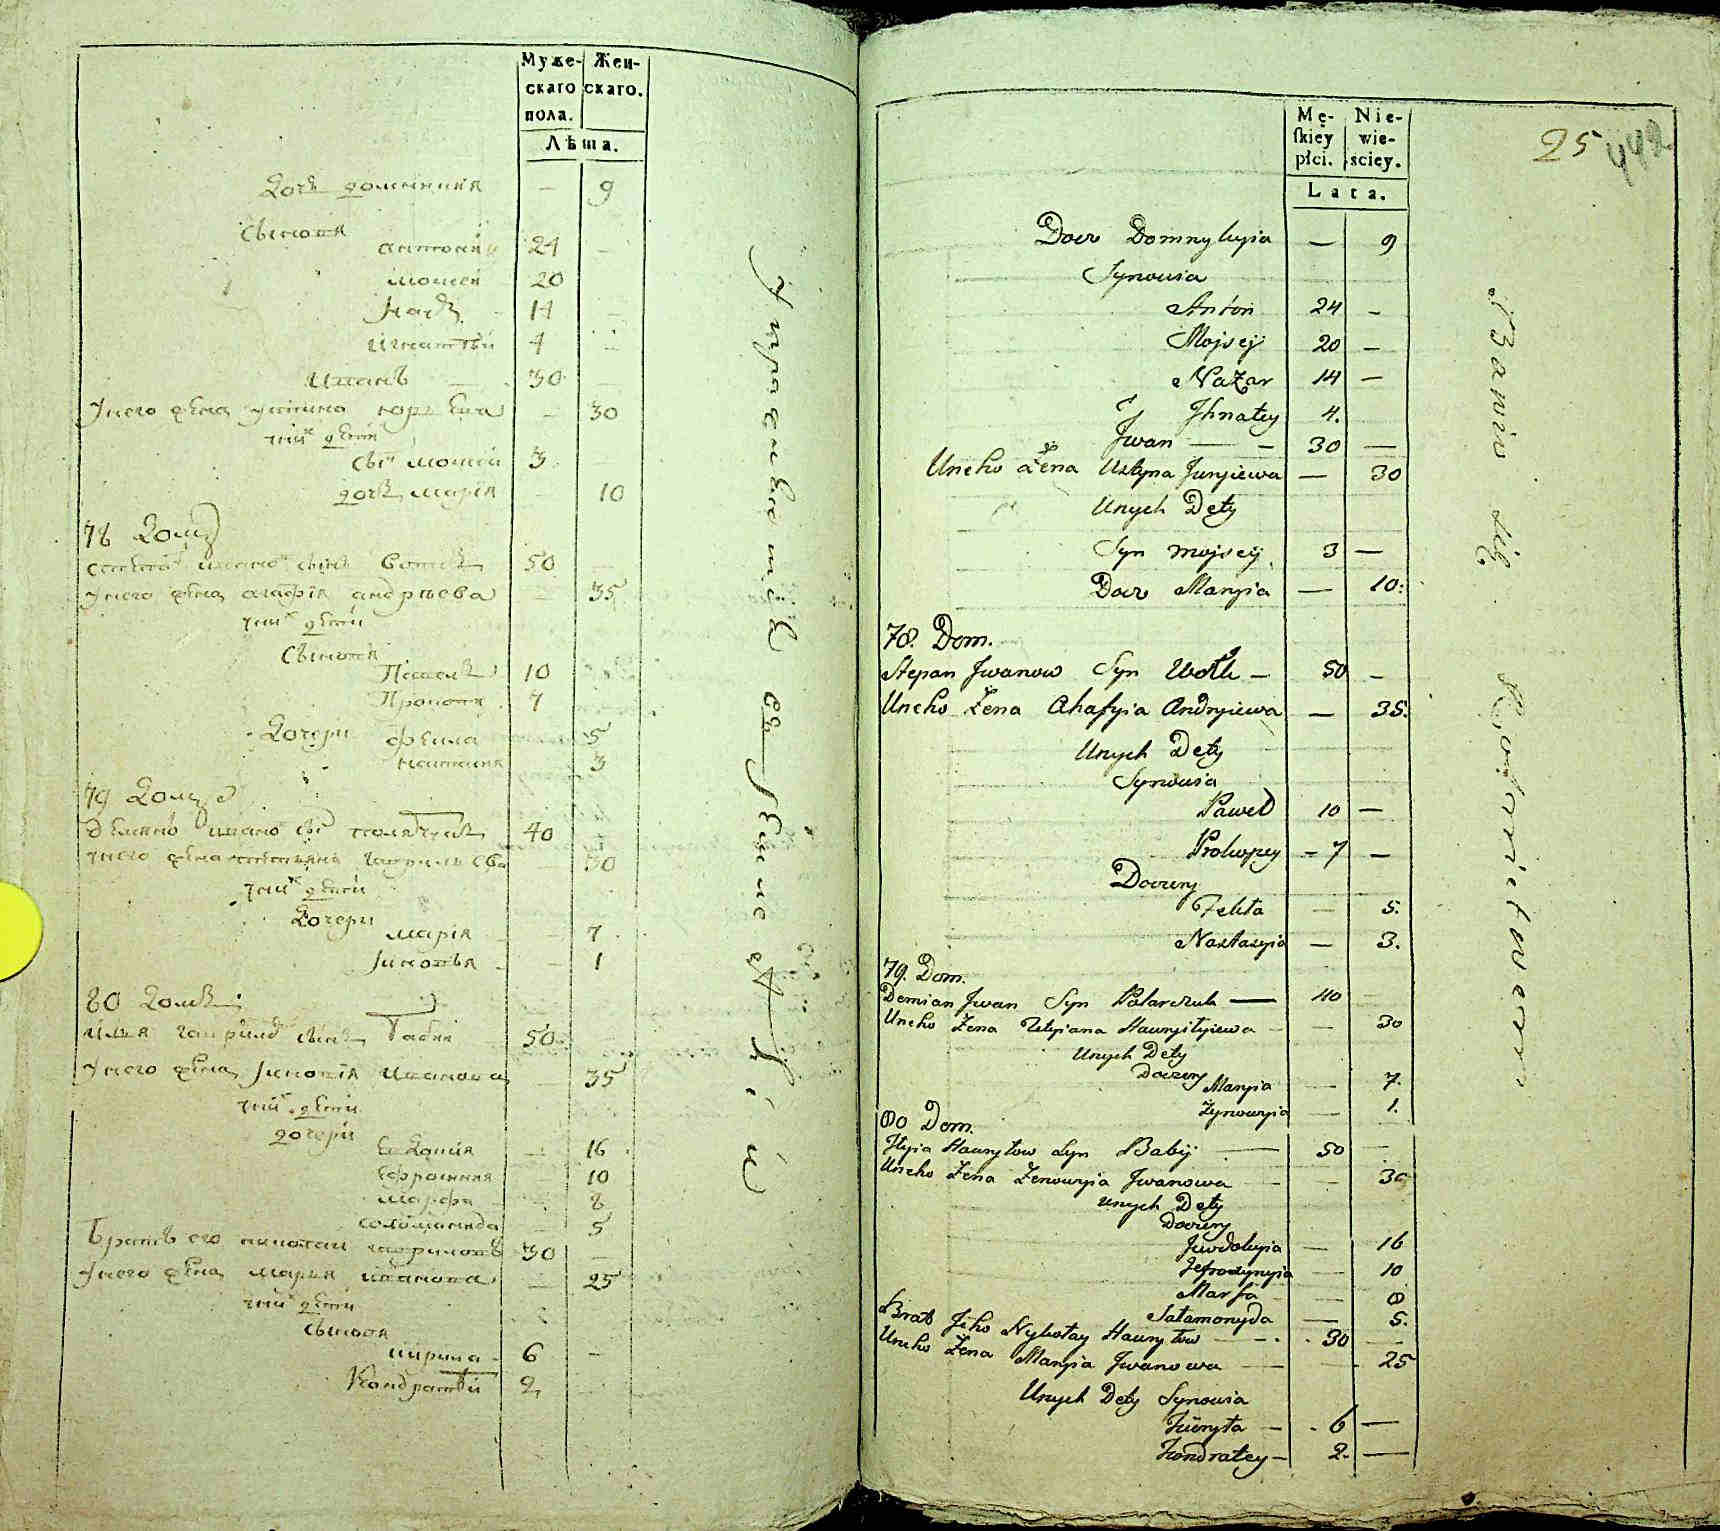 Муже- Жен-
скаго скаго.
пола.
Лѣта.
Дочь Домникия — 9
Сынов͏ія
Антоній 24 —
Мойсей 20
Назаръ 14
Игнатѣй 4
Иванъ 30
У него жена Устина Юрьева — 30
У них дети
Сын Мойсей 3
Дочь Мария 10
78 Домъ
Степанъ Иванов Сынъ Вовкъ 50
У него жена Агафія Андреева — 35
У них дети
Сыновя
Павелъ 10
7
Дочери Фекла 5
Настасия 3
79 Домъ
Демянъ Иванов Сынъ 40
У него жена Татияна Гаврилева 30
У них дети
Дочери
Марія 7
Зиновья — 1
80 Домъ
Илья Гаврилов Сынъ Бабий 50
У него жена Зиновія Иванова — 35
У них дети
Дочери
Евдокия — 16
Ефросиния 10
Марфа 8
Соломонида 5
Братъ его Николай Гавриловъ 30 —
У него жена Марья Иванова — 25
У них дети
Сыновя
Кирила 6 —
Кондратѣй 2
Mę- Nie-
skiey wie-
płci. sciey.
Lata.
25 442
Docz Domnykyia — 9
Synowia
Anton 24 —
Mojsej 20 —
Nazar 14 —
Jhnatey 4.
Jwan — 30 —
Uneho Żena Ustyna Juryiewa — 30
Unych Dety
Syn Mojsey 3 —
Docz Maryia — 10:
78. Dom.
Stepan Jwanow Syn Wołk — 50 —
Uneho Żena Ahafyia Andryiewa — 35.
Unych Dety
Synowia
Paweł 10 —
Prokopey - 7 —
Doczery
Fekła — 5.
Nastazyia — 3.
79. Dom.
Demian Jwan Syn Polarczuk — 40
Uneho Żena Tetyiana Hawryiłyiewa — 30
Unych Dety
Doczery
Maryia — 7.
Zynowyia — 1.
80 Dom.
Jlyia Hawryłow Syn Babij — 50
Uneho Żena Zenowyia Jwanowa — 35
Unych Dety
Doczery
Jewdokyia — 16
Jefrozynyia — 10
Marfa 8
Sałamonyda — 5.
Brat Jeho Nykołay Hawryłow — 30 —
Uneho Żena Maryia Jwanowa — 25
Unych Dety Synowia
Kiuryła — 6 —
Kondratey — 2. —